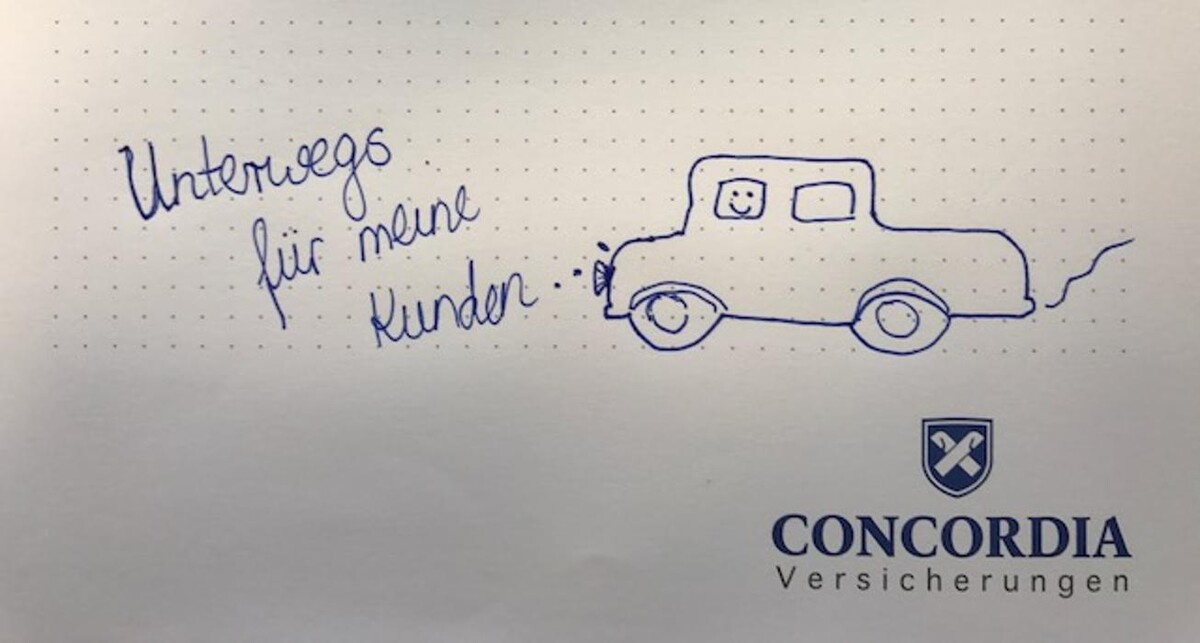 Unterwegs
für meine
Kunden...
CONCORDIA
Versicherungen